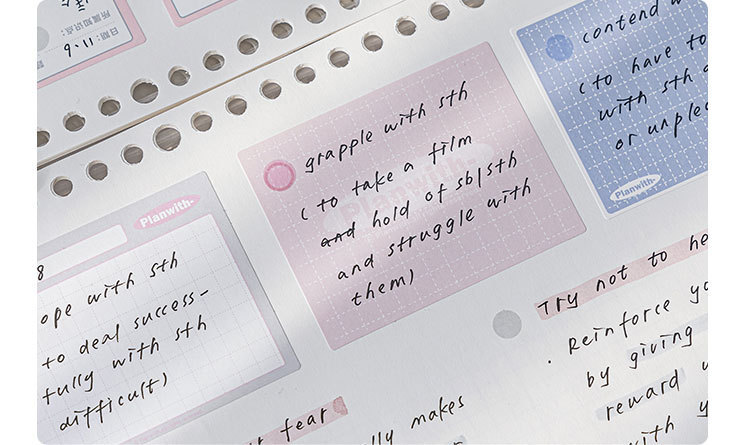 日期: 11.6
所属知识点:
contend w
(to have to
with sth
or unple
Planwith-
grapple with sth
(to take a film
and hold of sb/sth
and struggle with
them)
Planwith-
Planwith-
8
ope with sth
to deal success-
fully with sth
difficult)
Try not to he
. Reinforce yo
by giving
reward
with y
fear
lly makes